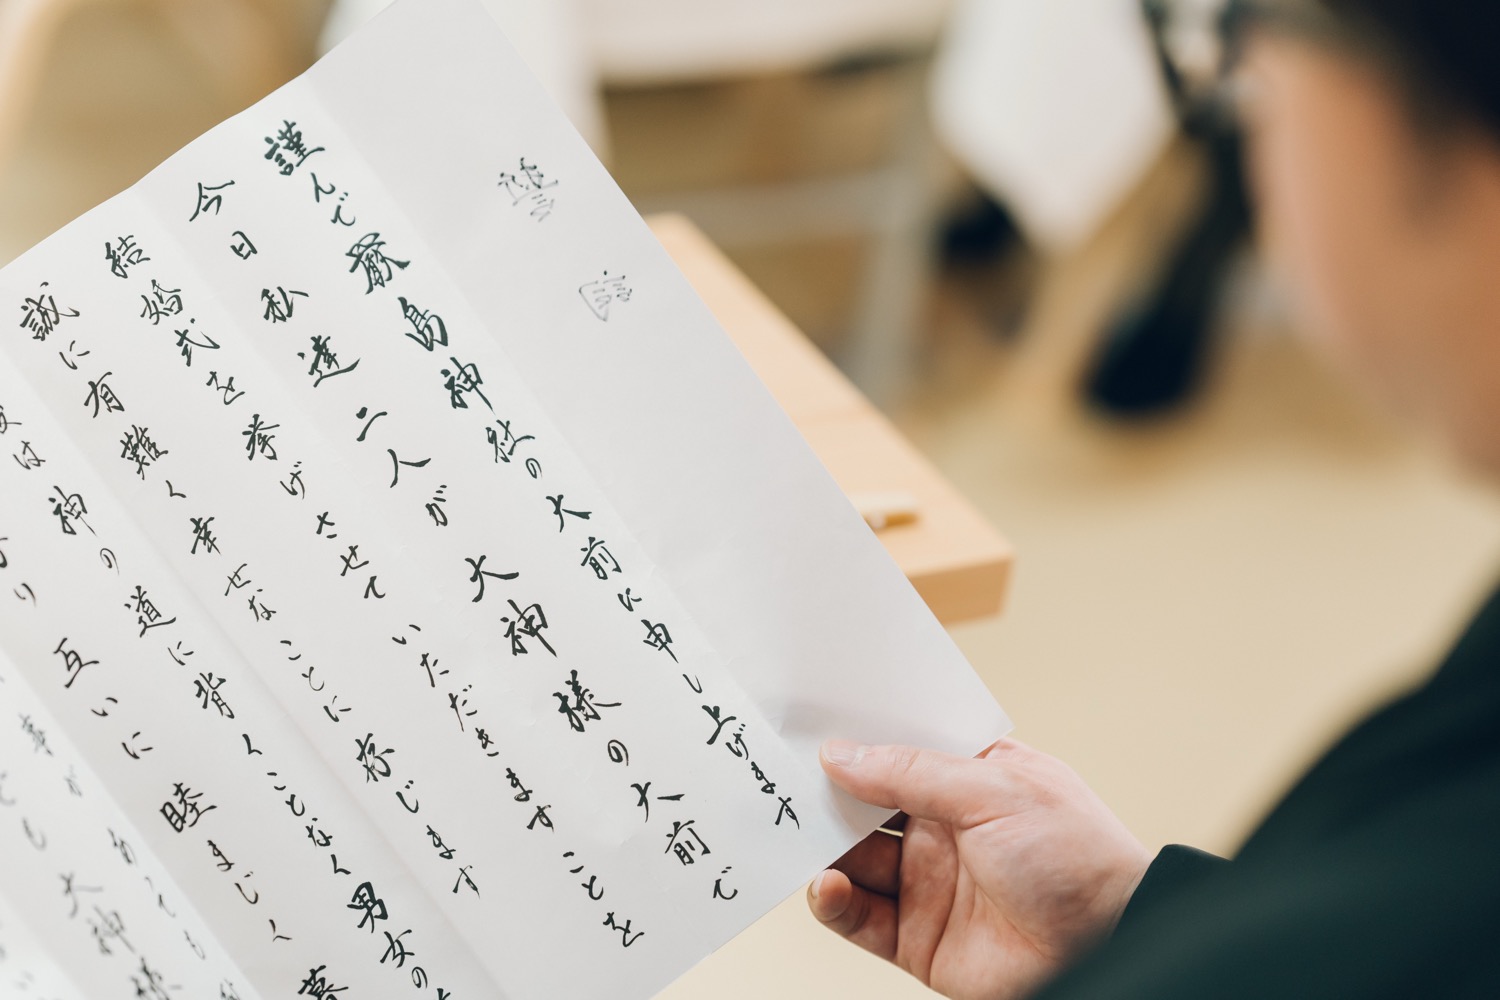 誓 詞
謹んで厳島神社の大前に申し上げます
今日私達二人が大神様の大前で
結婚式を挙げさせていただきますことを
誠に有難く幸せなことに存じます
は神の道に背くことなく男女の
互いに睦まじく
事があっても
大神様